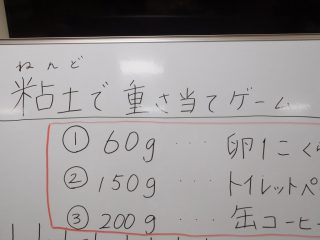 ねんど
粘土で 重さ当てゲーム
① 60g … 卵1こくら
② 150g … トイレットペ
③ 200g … 缶コーヒー